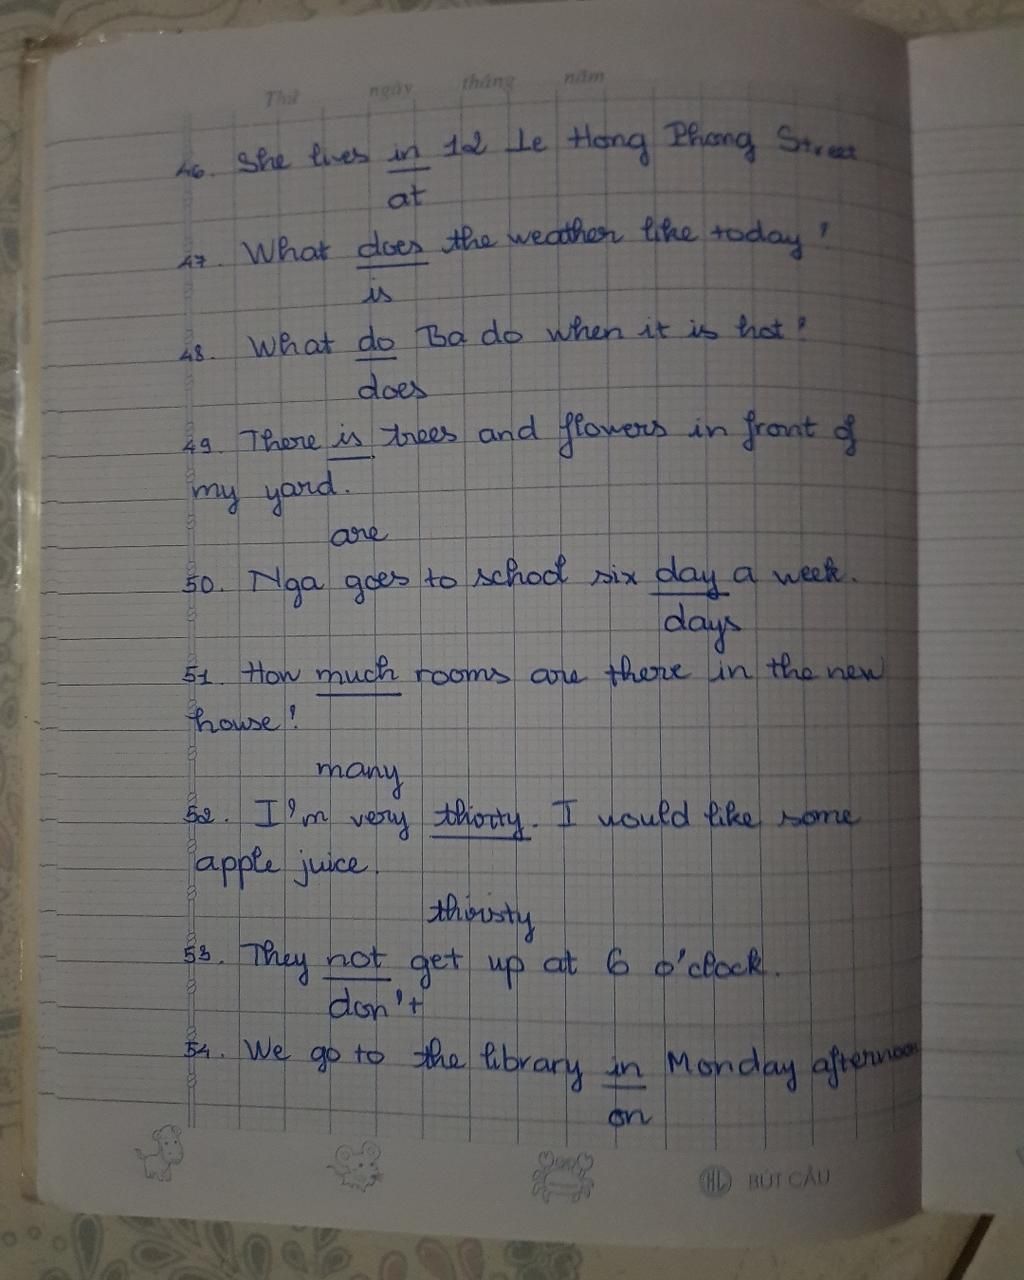 Thứ ngày tháng năm
46. She lives in 12 Le Hong Phong Street
at
47. What does the weather like today?
is
48. What do Ba do when it is hot?
does
49. There is trees and flowers in front of
my yard.
are
50. Nga goes to school six day a week.
days
51. How much rooms are there in the new
house?
many
52. I'm very thirty. I would like some
apple juice.
thirsty
53. They not get up at 6 o'clock.
don't
54. We go to the library in Monday afternoon
on
HL BÚT CÂU